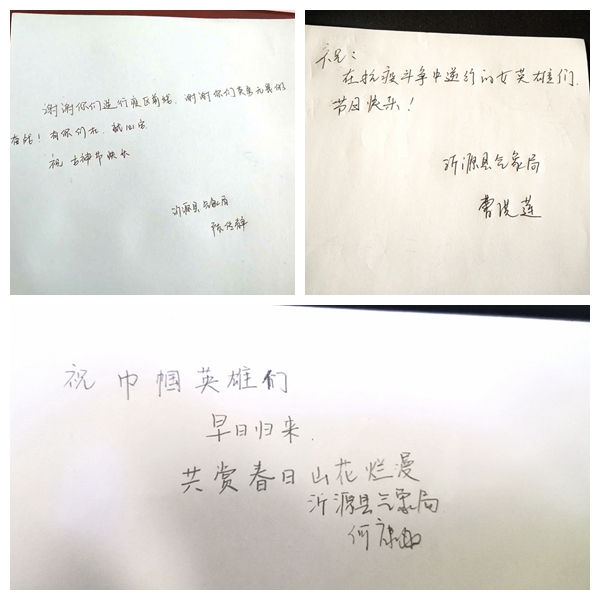 谢谢你们逆行疫区前线,谢谢你们
存在!有你们在,就心安
祝女神节快乐
沂源县气象局
祝:
在抗疫斗争中逆行的女英雄们,
节日快乐!
沂源县气象局
曹洪莲
祝巾帼英雄们
早日归来.
共赏春日山花烂漫
沂源县气象局
何